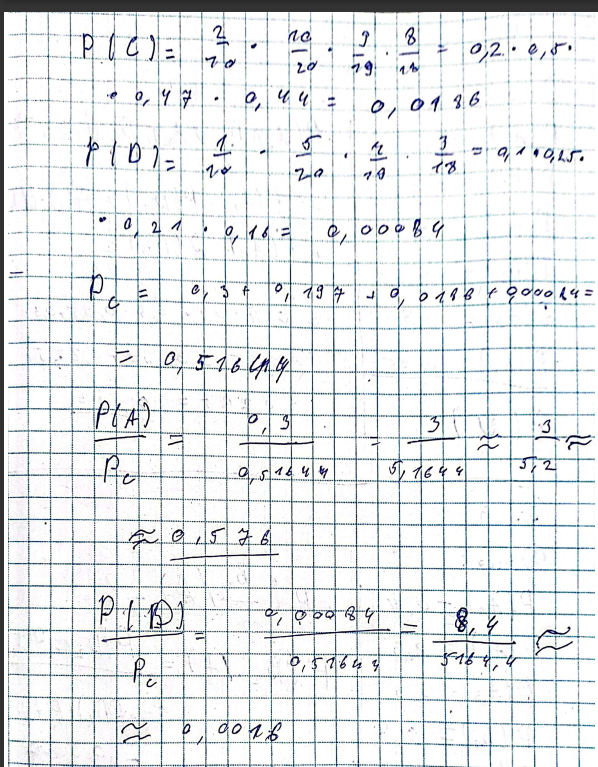 P(C) = 2/10 · 10/20 · 9/19 · 8/18 = 0,2 · 0,5 ·
· 0,47 · 0,44 = 0,0186
P(D) = 1/10 · 5/20 · 4/19 · 3/18 = 0,1 · 0,25 ·
· 0,21 · 0,16 = 0,00084
Pc = 0,3 + 0,197 + 0,0186 + 0,00084 =
= 0,51644
P(A)/Pc = 0,3/0,51644 = 3/5,1644 ≈ 3/5,2 ≈
≈ 0,576
P(D)/Pc = 0,00084/0,51644 = 8,4/5164,4 ≈
≈ 0,0016